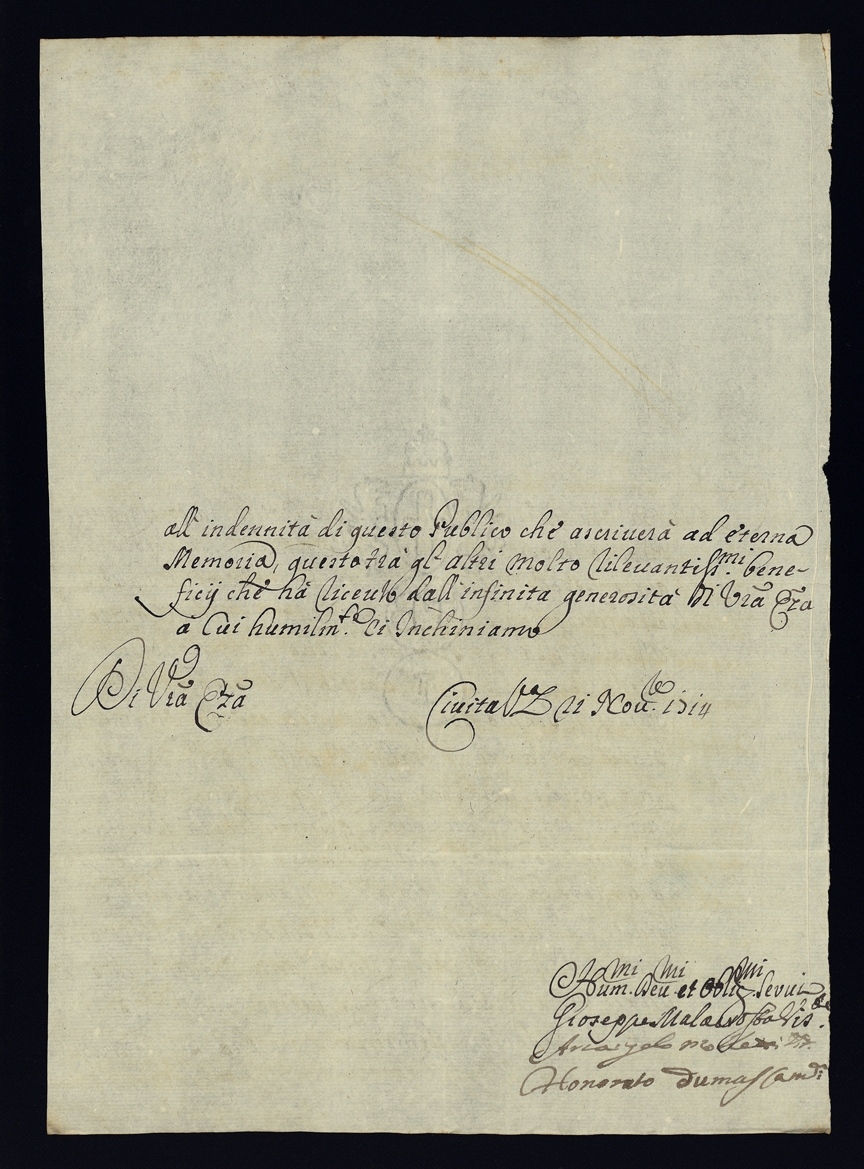 all' indennità di questo Publico che ascriuerà ad eterna
Memoria, questo trà gl' altri molto rileuantiss.mi bene-
ficij che hà riceuto dall' infinita generosità Di Vra Eza
à Cui humilm.te ci Inchiniamo
Di Vra Eza
Ciuita Va 21 Nou.e 1714
Hum.mi Deu.mi et Oblig.mi Seruit.
Gioseppe
Honorato Dumas